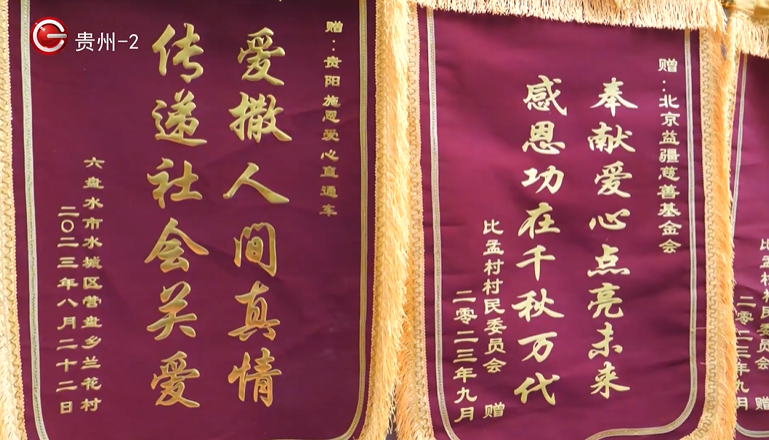 贵州-2
赠：贵阳施恩爱心直通车
爱撒人间真情
传递社会关爱
六盘水市水城区营盘乡兰花村
二〇二三年八月二十二日
赠：北京益疆慈善基金会
奉献爱心点亮未来
感恩功在千秋万代
比孟村村民委员会 赠
二零二三年九月
比孟村村民委员会 赠
二零二三年九月